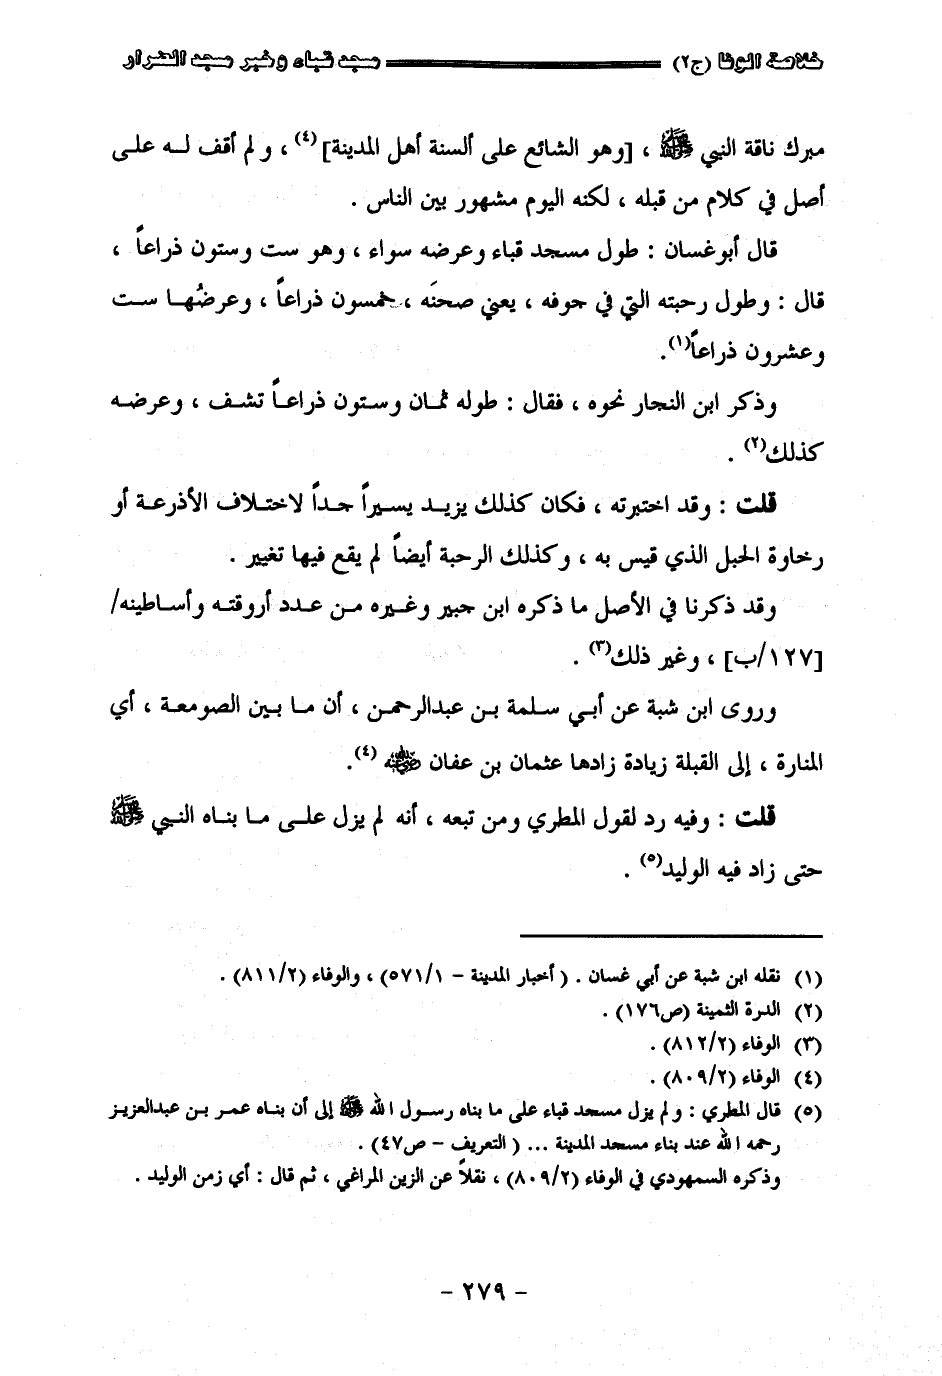 خلاصة الوفا (ج٢) مسجد قباء وخبر مسجد الضرار
مبرك ناقة النبي ﷺ ، [وهو الشائع على ألسنة أهل المدينة](٤) ، ولم أقف لـه علـى
أصل في كلام من قبله ، لكنه اليوم مشهور بين الناس .
قال أبوغسان : طول مسجد قباء وعرضه سواء ، وهو ست وستون ذراعاً ،
قال : وطول رحبته التي في جوفه ، يعني صحنَه ، خمسون ذراعاً ، وعرضُهـا سـت
وعشرون ذراعاً(١).
وذكر ابن النجار نحوه ، فقال : طوله ثمـان وسـتون ذراعـاً تشـف ، وعرضـه
كذلك(٢) .
قلت : وقد اختبرته ، فكان كذلك يزيـد يسـيراً جـداً لاختـلاف الأذرعـة أو
رخاوة الحبل الذي قيس به ، وكذلك الرحبة أيضاً لم يقع فيها تغيير .
وقد ذكرنا في الأصل ما ذكره ابن جبير وغـيره مـن عـدد أروقتـه وأسـاطينه/
[١٢٧/ب] ، وغير ذلك(٣) .
وروى ابن شبة عن أبـي سـلمة بـن عبدالرحمـن ، أن مـا بـين الصومعـة ، أي
المنارة ، إلى القبلة زيادة زادها عثمان بن عفان ﷺ (٤).
قلت : وفيه رد لقول المطري ومن تبعه ، أنه لم يزل علـى مـا بنـاه النـبي ﷺ
حتى زاد فيه الوليد(٥) .
(١) نقله ابن شبة عن أبي غسان . (أخبار المدينة – ٥٧١/١) ، والوفاء (٨١١/٢) .
(٢) الدرة الثمينة (ص١٧٦) .
(٣) الوفاء (٨١٢/٢) .
(٤) الوفاء (٨٠٩/٢) .
(٥) قال المطري : ولم يزل مسجد قباء على ما بناه رسـول الله ﷺ إلى أن بنـاه عمـر بـن عبدالعزيـز
رحمه الله عند بناء مسجد المدينة ... (التعريف – ص٤٧) .
وذكره السمهودي في الوفاء (٨٠٩/٢) ، نقلاً عن الزين المراغي ، ثم قال : أي زمن الوليد .
- ٢٧٩ -